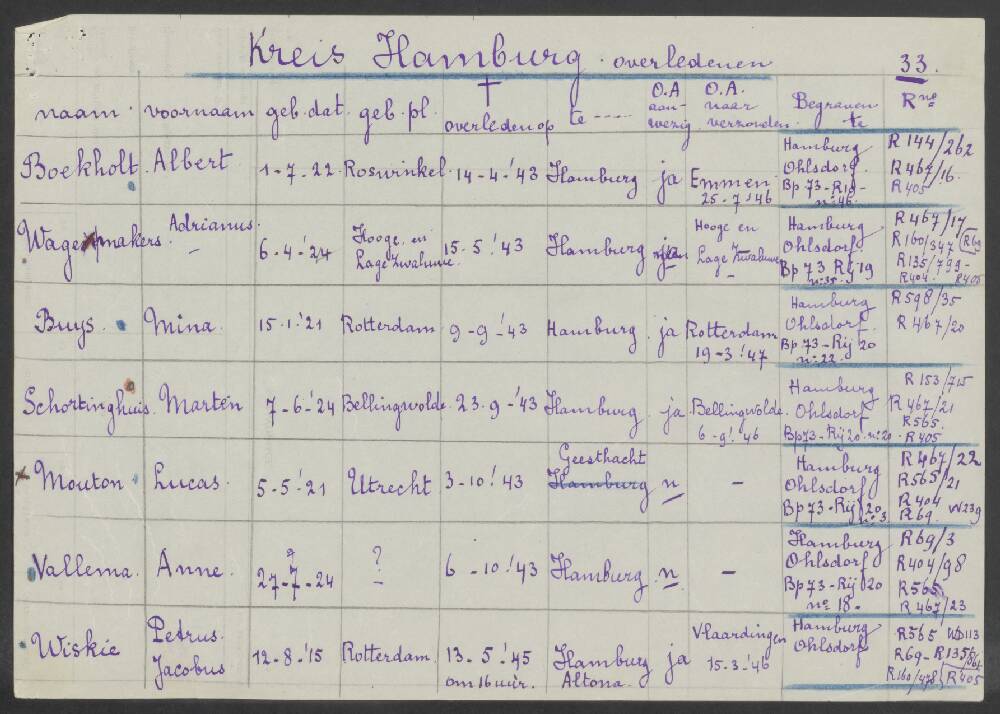 Kreis Hamburg. overledenen 33.
naam. voornaam geb.dat. geb.pl. † overleden op te ---- O.A aanwezig O.A. naar verzonden. Begraven te R no
Boekholt Albert 1-7-22. Roswinkel. 14-4-'43 Hamburg ja Emmen 25-7-'46 Hamburg Ohlsdorf. Bp 73-R19- no 46. R 144/262 R 467/16. R 405
Wagemakers. Adrianus. 6-4-'24 Hooge en Lage Zwaluwe. 15-5-'43 Hamburg Hooge en Lage Zwaluwe Hamburg Ohlsdorf. Bp 73 Rij 19 no 35. R 467/17 R 160/347 R 69 R 135/799- R 404. R 405
Buys. Mina. 15-1-'21 Rotterdam 9-9-'43 Hamburg. ja Rotterdam 19-3-'47 Hamburg Ohlsdorf. Bp 73-Rij 20 no 22. R 598/35 R 467/20
Schortinghuis. Marten 7-6-'24 Bellingwolde. 23.9-'43 Hamburg. ja Bellingwolde. 6-9-'46 Hamburg Ohlsdorf Bp 73-Rij 20. no 20. R 153/715 R 467/21 R 565. R 405
Mouton Lucas. 5-5-'21 Utrecht 3-10-'43 Geesthacht Hamburg n - Hamburg Ohlsdorf Bp 73-Rij 20 no 3 R 467/22 R 565/21 R 404 R 69. W 239
Vallema. Anne. 27-7-24 ? 6-10-'43 Hamburg. n - Hamburg Ohlsdorf Bp 73-Rij 20 no 18. R 69/3 R 404/98 R 565 R 467/23
Wiskie Petrus. Jacobus 12-8-'15 Rotterdam. 13-5-'45 om 16 uur. Hamburg Altona. ja Vlaardingen 15-3-'46 Hamburg Ohlsdorf R 565 R 69- R 160/478 R 405